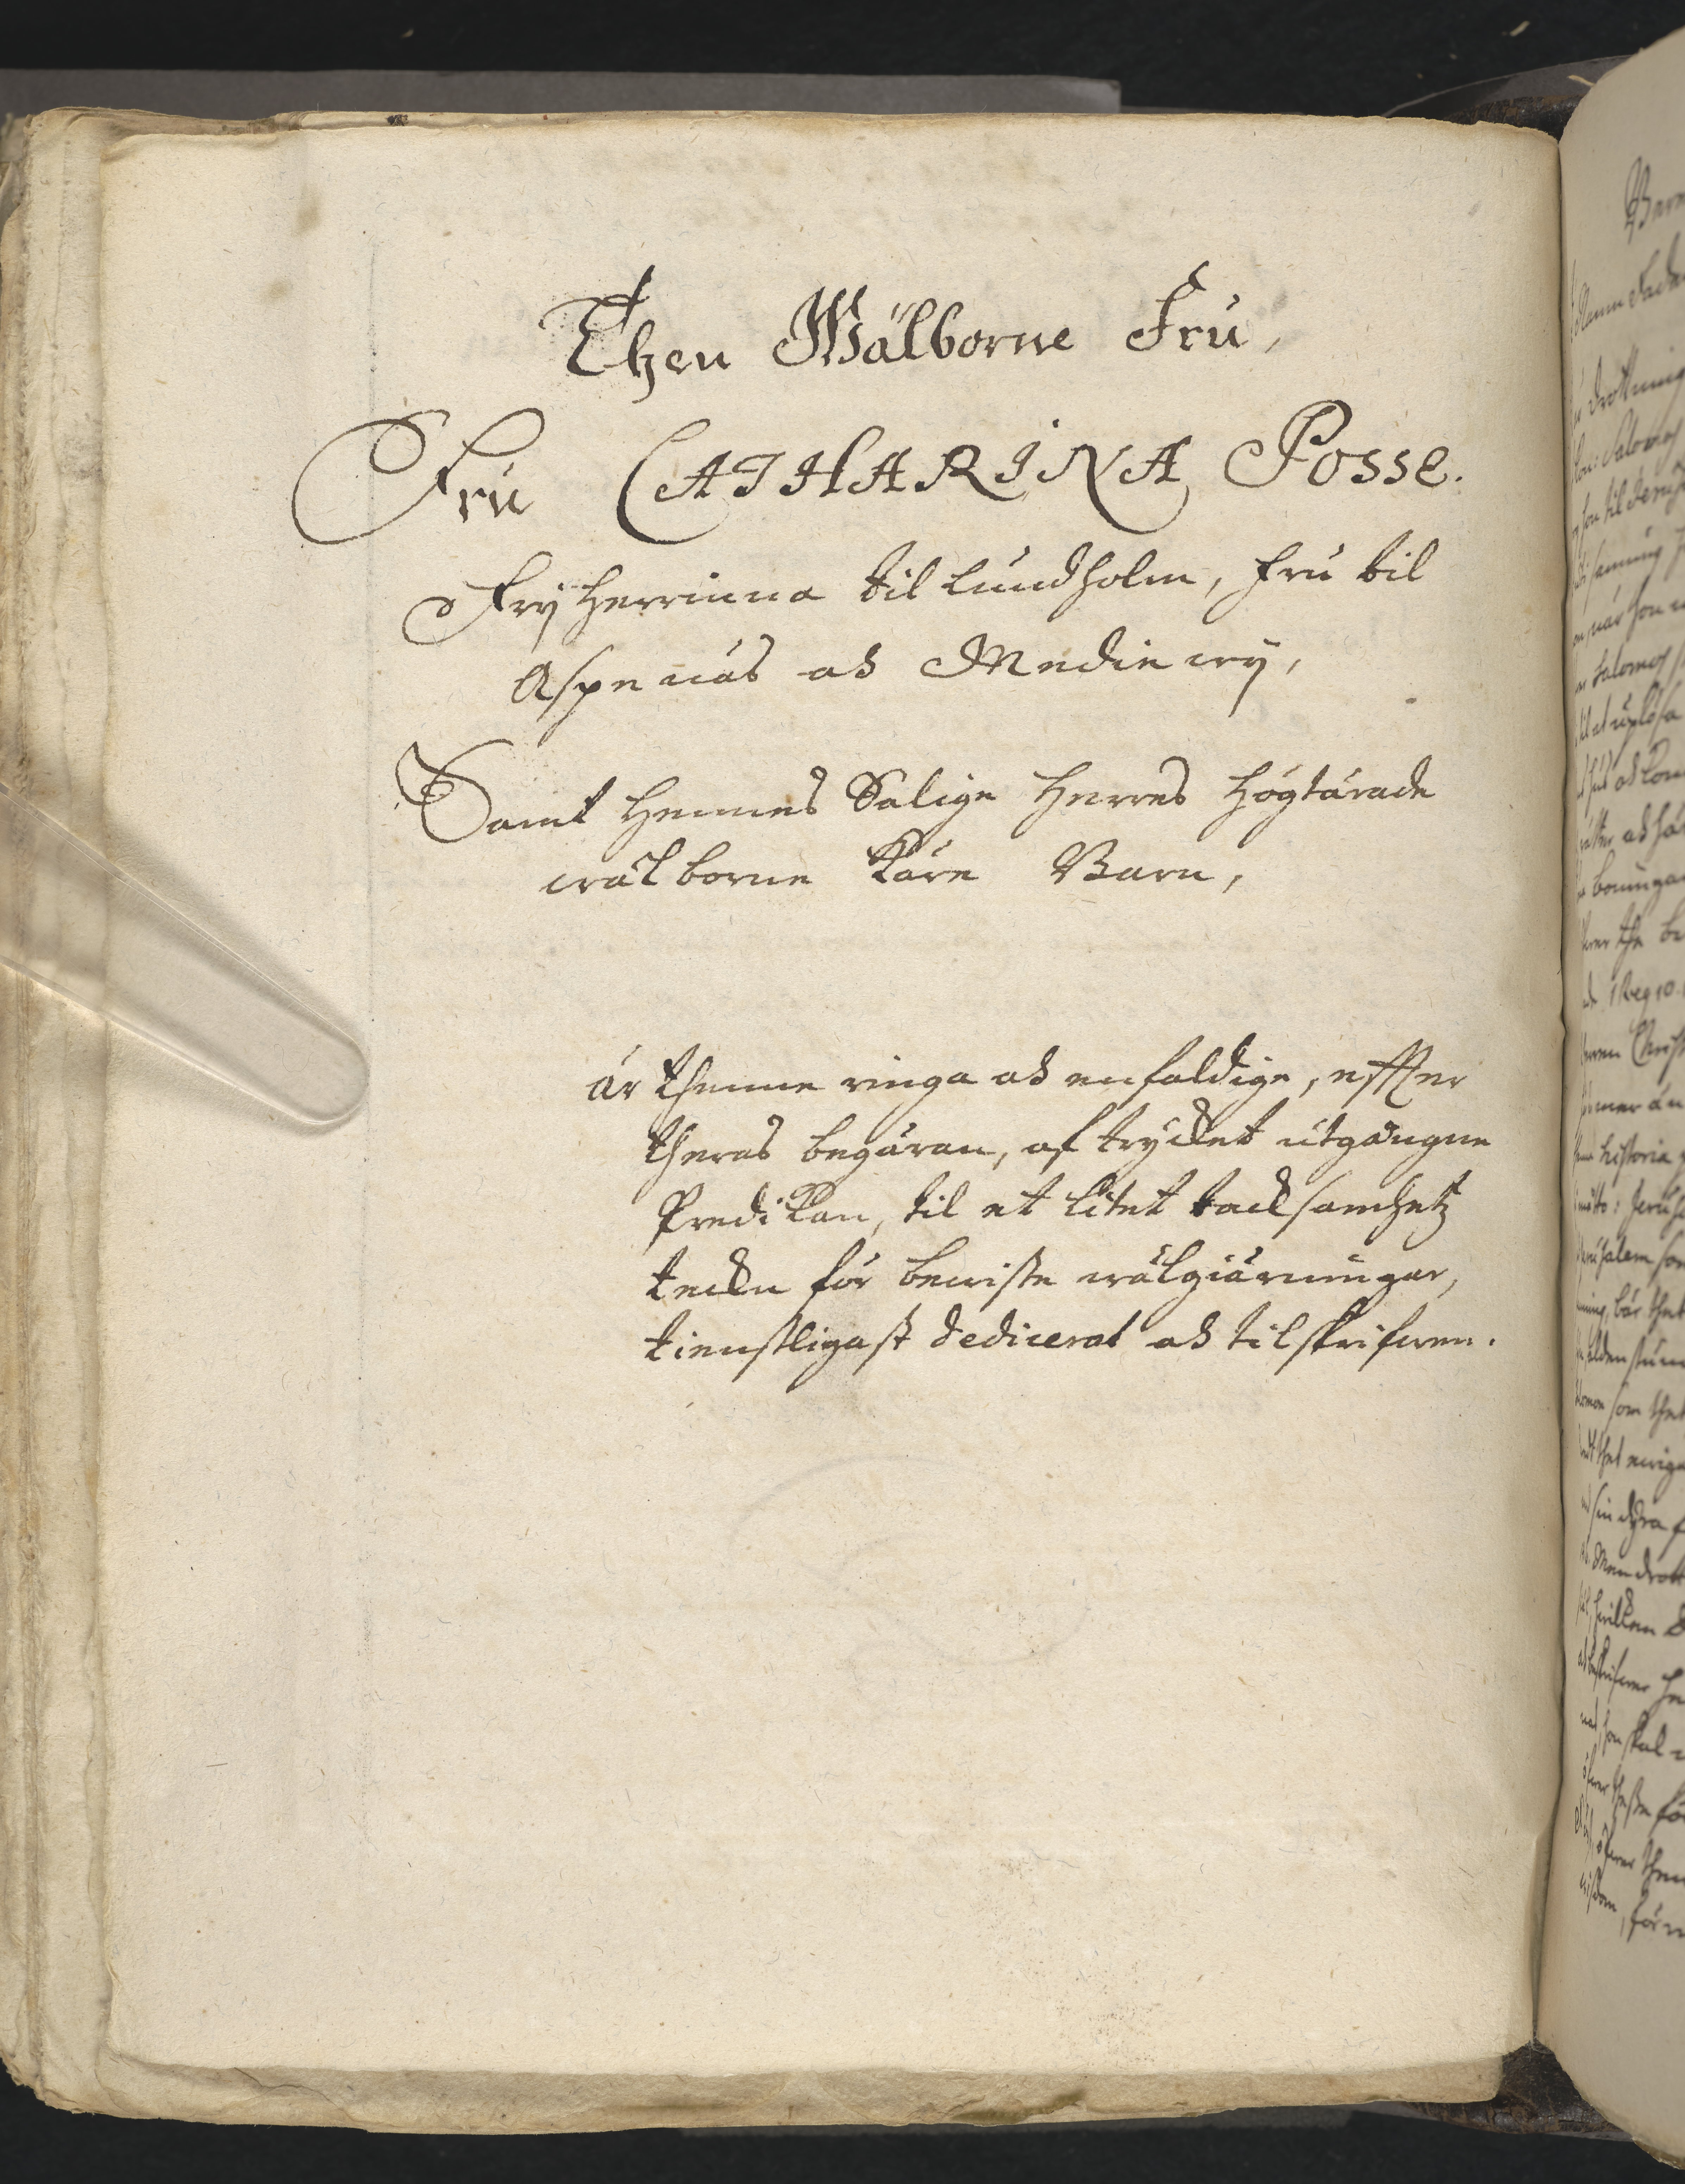 Then Wälborne Fru,
Fru CATHARINA Posse.
Fryherrinna til Lundholm, Fru til
Aspenäs och Medewy,
Samt hennes Salige Herres högtärade
wälborne käre Barn,
är thenne ringa och enfaldige, effter
theras begäran, af trycket utgångne
Predikan, til et litet tacksamhetz
tecken för bewiste wälgiärningar,
tienstligast dedicerat och tilskrifwen.